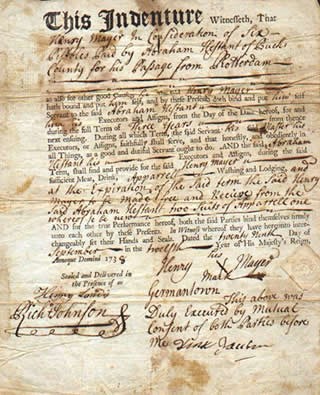 This Indenture Witnesseth, That
Henry Mayer In Consideration of Six
Pistoles Paid by Abraham Hestant of Bucks
County for his Passage from Rotterdam
as also for other good Causes he the said Henry Mayer
hath bound and put him self, and by these Presents doth bind and put him self
Servant to the said Abraham Hestant
his Executors and Assigns, from the Day of the Date hereof, for and
during the full Term of Three Years
next ensuing. During all which Term, the said Servant his said Master his
Executors, or Assigns, faithfully shall serve, and that honestly and obediently in
all Things, as a good and dutiful Servant ought to do. AND the said Abraham
Hestant his Executors and Assigns, during the said
Term, shall find and provide for the said Henry Mayer
sufficient Meat, Drink, Apparel, Washing and Lodging, and
at the Expiration of the Said term the Said Henry
Mayer to be made free and Receive from the
Said Abraham Hestant two Suits of Apparrell one
whereof to be new
AND for the true Performance hereof, both the said Parties bind themselves firmly
unto each other by these Presents. In Witness whereof they have hereunto inter-
changeably set their Hands and Seals. Dated the Twenty Ninth Day of
September in the twelfth Year of His Majesty's Reign,
Annoque Domini 1738
his
Henry Mayer
mark
Sealed and Delivered in
the Presence of us
Rich Johnson
Germantown
This above was
Duly Executed by Mutual
Consent of both Parties before
me